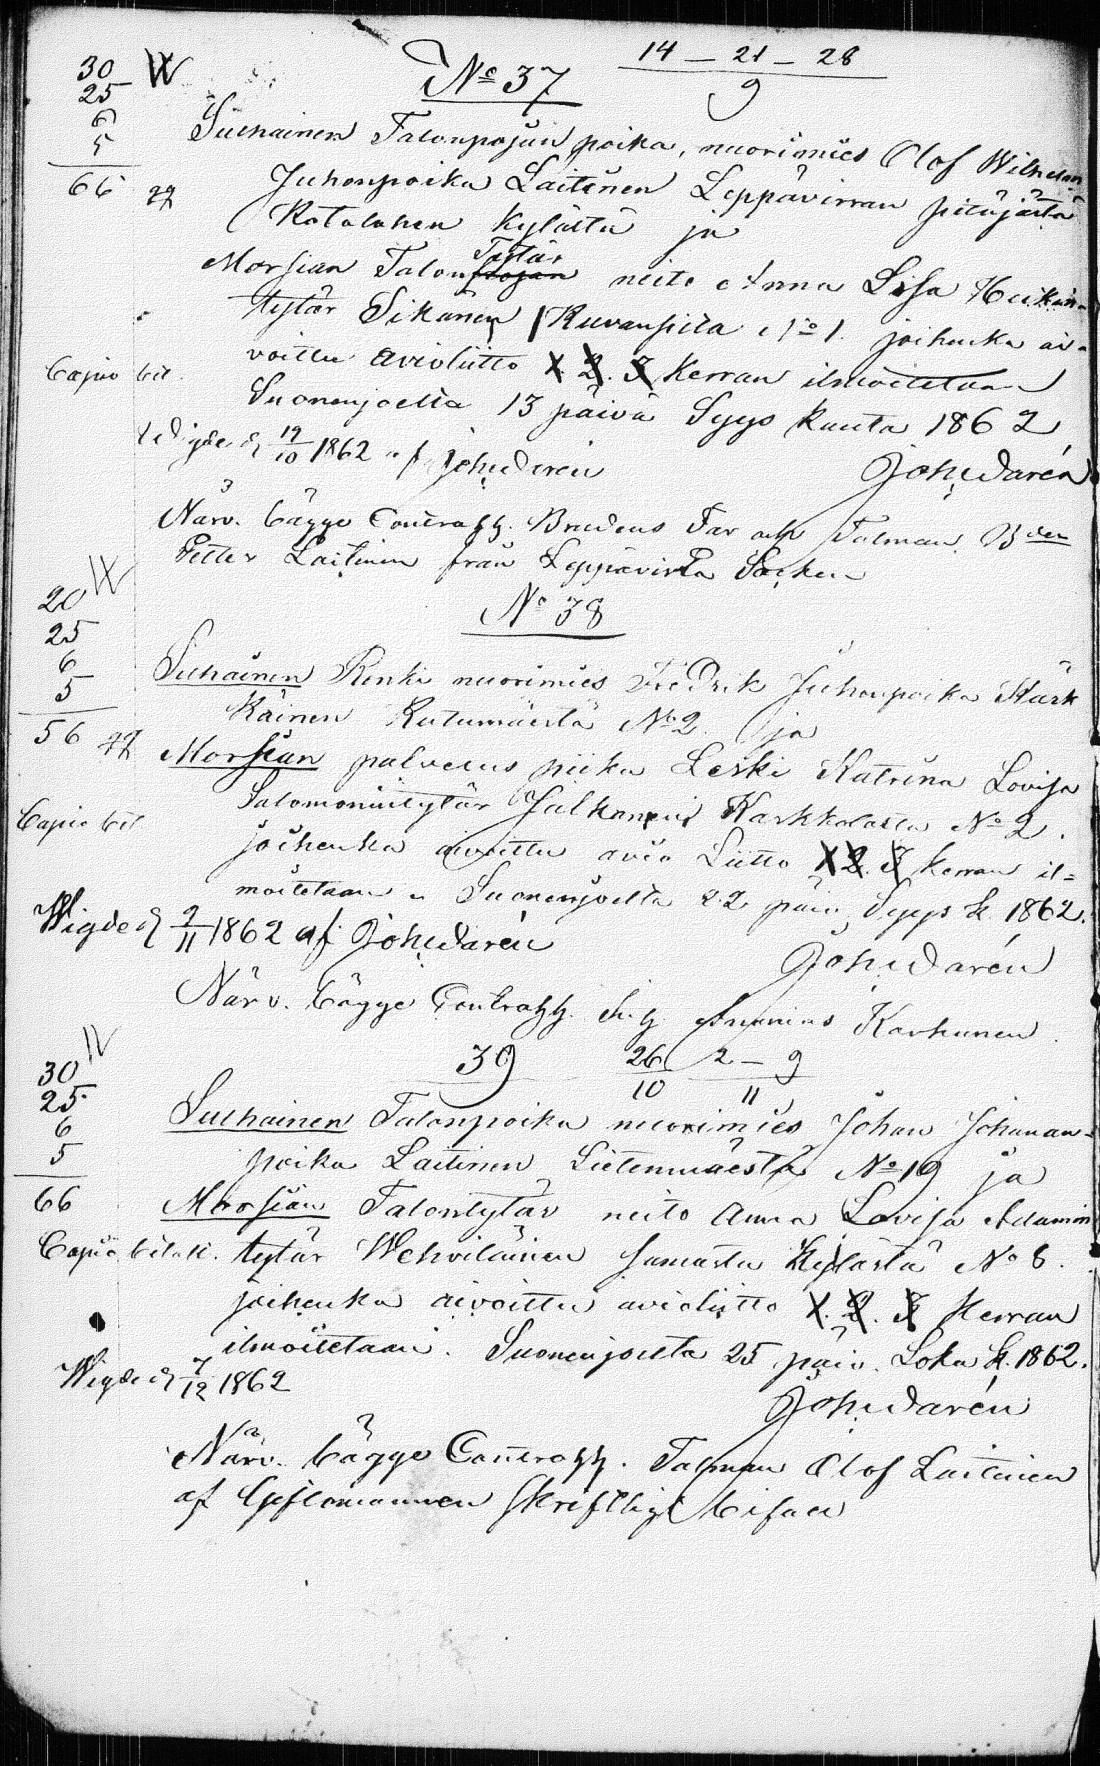 14 – 21 – 28
9
No 37
30
25
6
5
66
Sulhainen Talonpojan poika, nuorimies Olof Wilhelm
Juhonpoika Laitinen Leppävirran pitäjästä
Kotalahen kylästä ja
Tytär
Morsian Talonpojan neito Anna Lisa Heikin-
tytär Sikanen Kuvansita No 1. joihenka ai-
voittu avioliitto 1. 2. 3 Kerran ilmoitetaan
Capio bet.
Suonenjoelta 13 päivä Syys kuuta 1862
Joh. Darén
Wigde d 19/10 1862 af Joh. Darén
Närv. bägge Contrahh. Brudens Far och Talman Bden
Petter Laitinen från Leppävirta Socken
No 38
20
25
6
5
56
Sulhainen Renki nuorimies Fredrik Juhonpoika Kärk
käinen Kutumäestä No 2. ja
Morsian palvelus piika Leski Katrina Lovisa
Salomonintytär Jalkanen Karkkalasta No 2.
Capio bet.
joihenka aivottu avio Liitto 1. 2. 3 kerran il=
moitetaan. Suonenjoelta 22 päiv. Syys k. 1862.
Joh. Darén
Wigde d 2/11 1862 af Joh. Darén
Närv. bägge Contrahh. Ananias Karhunen.
39
26/10 2 – 9/11
30
25
6
5
66
Sulhainen Talonpoika nuorimies Johan Johanan-
poika Laitinen Lietenmäestä No 19 ja
Morsian Talontytär neito Anna Lovisa Adamin
tytär Wehviläinen samasta Kylästä No 6.
Capio betalt.
joihenka aivoittu avioliitto 1. 2. 3 Kerran
ilmoitetaan. Suonenjoelta 25 päiv. Loka k. 1862.
Joh. Darén
Wigde d 7/12 1862
Närv. bägge Contrahh. Talman Olof Laitinen
af Giftomannen skriftligt bifall